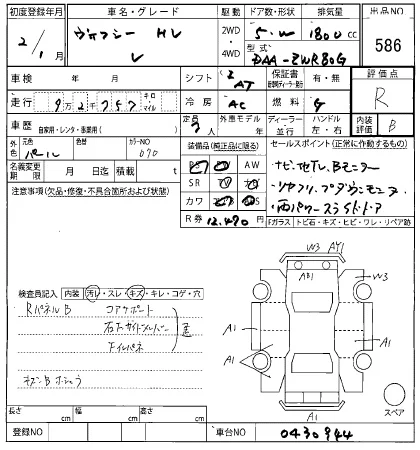 初度登録年月 車名・グレード 駆動 ドア数・形状 排気量 出品NO
2/1月 ヴォクシー HV 2WD 5・W 1800cc 586
V 4WD 型式 DAA-ZWR80G
車検 年 月 シフト AT 保証書 有・無 評価点
走行 9万2千757 キロ マイル 冷房 AC 燃料 G R
車歴 自家用・レンタ・事業用( ) 定員 7人 外車モデル 年 ディーラー 並行 ハンドル 左・右 内装評価 B
外色 元色 パール 色替 カラーNO 070 装備品(純正品に限る) セールスポイント(正常に作動するもの)
名義変更期限 月 日迄 積載 t PS AW ナビ 地デジ Bモニター
注意事項(欠品・修復・不具合箇所および状態) SR
カワ 両パワースライドドア
R券 12,490円 Fガラス トビ石・キズ・ヒビ・ワレ・リペア跡
検査員記入 内装 汚レ・スレ・キズ・キレ・コゲ・穴
W3 AY1
AB1 W3
RパネルB コアサポート
A1 A1
石下サイドメンバー
下イルパネ
歪
A1
A1
スペア
長さ cm 幅 cm 高さ cm
登録NO 車台NO 0430944